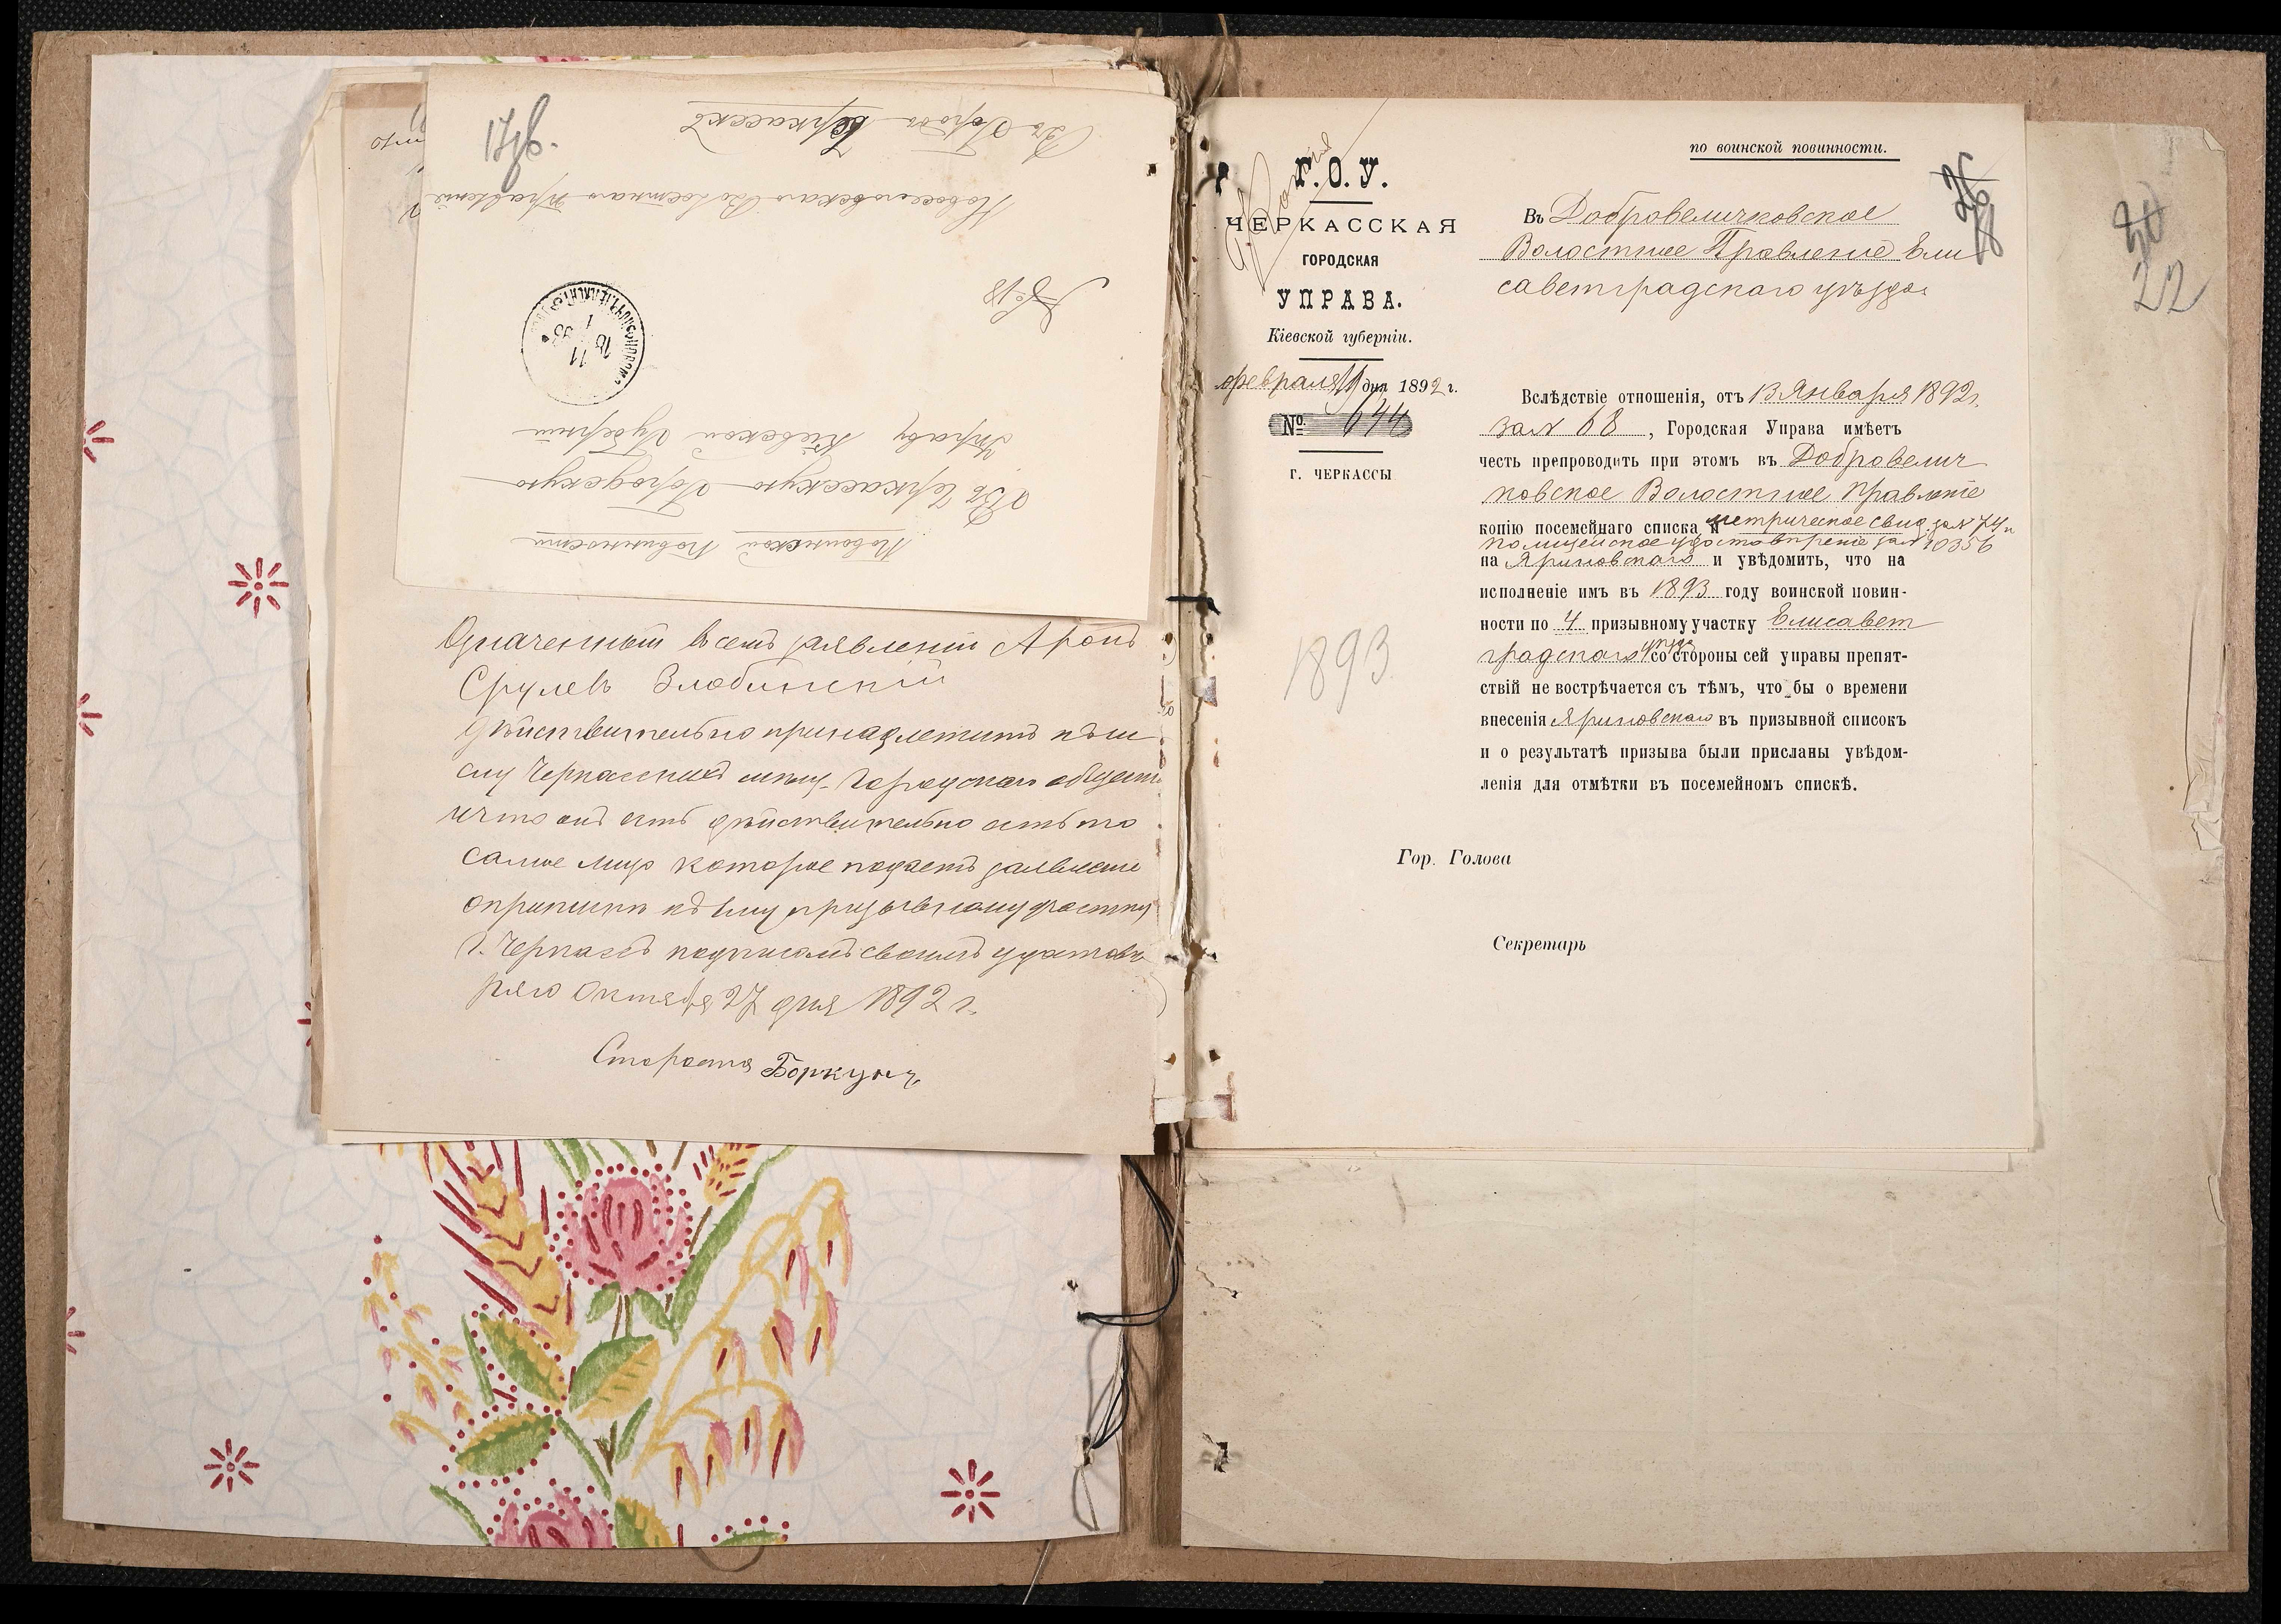 17об.
Въ Городъ Черкассы
Новоселовскаго Волостнаго Правленія
№ 18
11
Управу Кіевской Губерніи
Въ Черкасскую Городскую
По воинской повинности
Означенный въ семъ заявленіи Аронъ
Срулевъ Злобинскій
действительно принадлежитъ къ
Черкасскихъ городскаго
что онъ есть действительно есть то
самое лицо которое подаетъ заявленіе
о припискѣ къ призывному участку
г. Черкассъ подписомъ своимъ удостовѣ
ряю Октября 27 дня 1892 г.
Староста Боркунъ
по воинской повинности.
Г. О. У.
ЧЕРКАССКАЯ
ГОРОДСКАЯ
УПРАВА.
Кіевской губерніи.
февраля 11 дня 1892 г.
№ 644
г. ЧЕРКАССЫ
1893
18
22
Въ Добровеличковское
Волостное Правленіе Ели
саветградскаго уѣзда
Вслѣдствіе отношенія, отъ 13 Января 1892 г.
за № 68, Городская Управа имѣетъ
честь препроводить при этомъ въ Добровелич
ковское Волостное Правленіе
копію посемейнаго списка и метрическое свид. за № 74 и
полицейское удостовѣреніе за № 10356
на Яриновскаго и увѣдомить, что на
исполненіе имъ въ 1893 году воинской повин-
ности по 4 призывному участку Елисавет
градскаго уѣзда со стороны сей управы препят-
ствій не вострѣчается съ тѣмъ, что бы о времени
внесенія Яриновскаго въ призывной списокъ
и о результатѣ призыва были присланы увѣдом-
ленія для отмѣтки въ посемейномъ спискѣ.
Гор. Голова
Секретарь